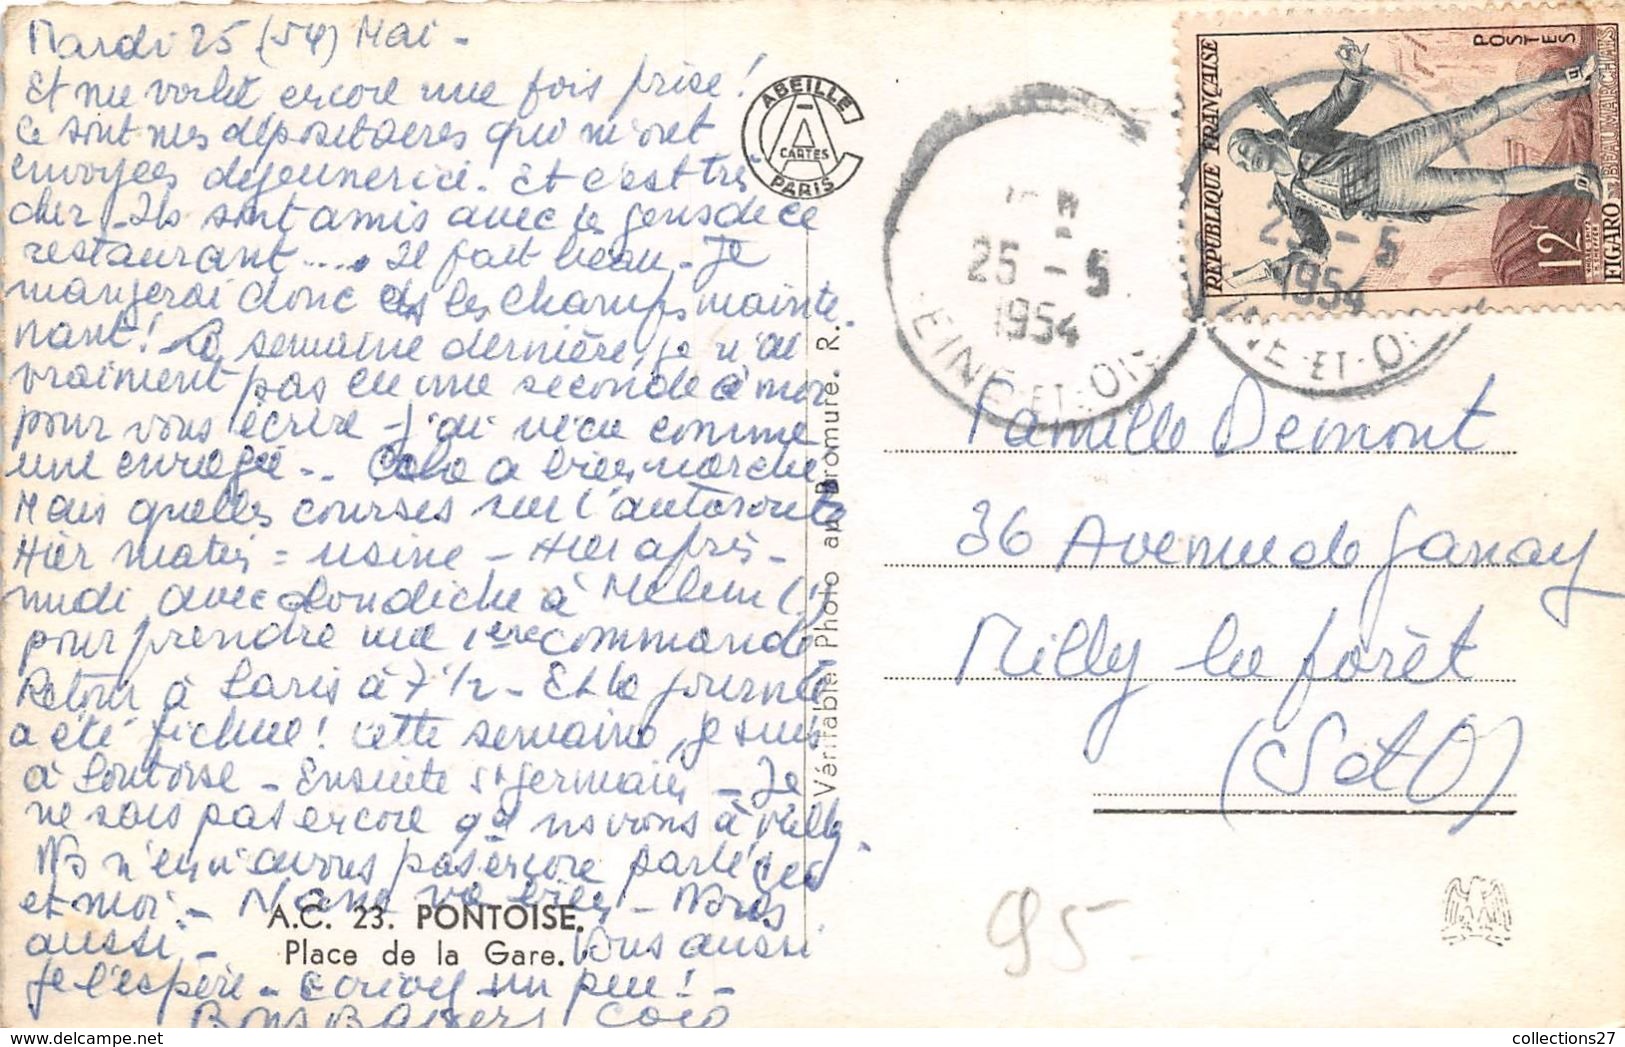 Mardi 25 (54) Mai -
Et me voilà encore une fois prise !
Ce sont mes dépositaires qui m'ont
envoyées déjeuner ici. Et c'est très
cher - Ils sont amis avec les gens de ce
restaurant .... Il fait beau - Je
mangerai donc ds les champs mainte
nant ! La semaine dernière, je n'ai
vraiment pas eu une seconde à moi
pour vous écrire - j'ai vécu comme
une enragée - Cela a bien marché
Mais quelles courses sur l'autoroute
Hier matin = usine - Hier après-
midi avec à Melun (!)
pour prendre une 1ere commande
Retour à Paris à 7h 1/2 - Et la journée
a été fichue ! Cette semaine, je suis
à Pontoise - Ensuite St Germain - Je
ne sais pas encore qd ns irons à Milly.
Ns n'en avons pas encore parlé
et moi - va bien - Nous
aussi - Vous aussi
je l'espère - Ecrivez un peu ! -
Bons Baisers Coco
A.C. 23. PONTOISE.
Place de la Gare.
ABEILLE
CARTES
PARIS
Véritable Photo au Bromure. R.
25 - 5
1954
SEINE-ET-OISE
25 - 5
1954
SEINE-ET-OISE
REPUBLIQUE FRANÇAISE
POSTES
12F
FIGARO - BEAUMARCHAIS
Famille Demont
36 Avenue de Ganay
Milly la forêt
(S et O)
95-
collections27